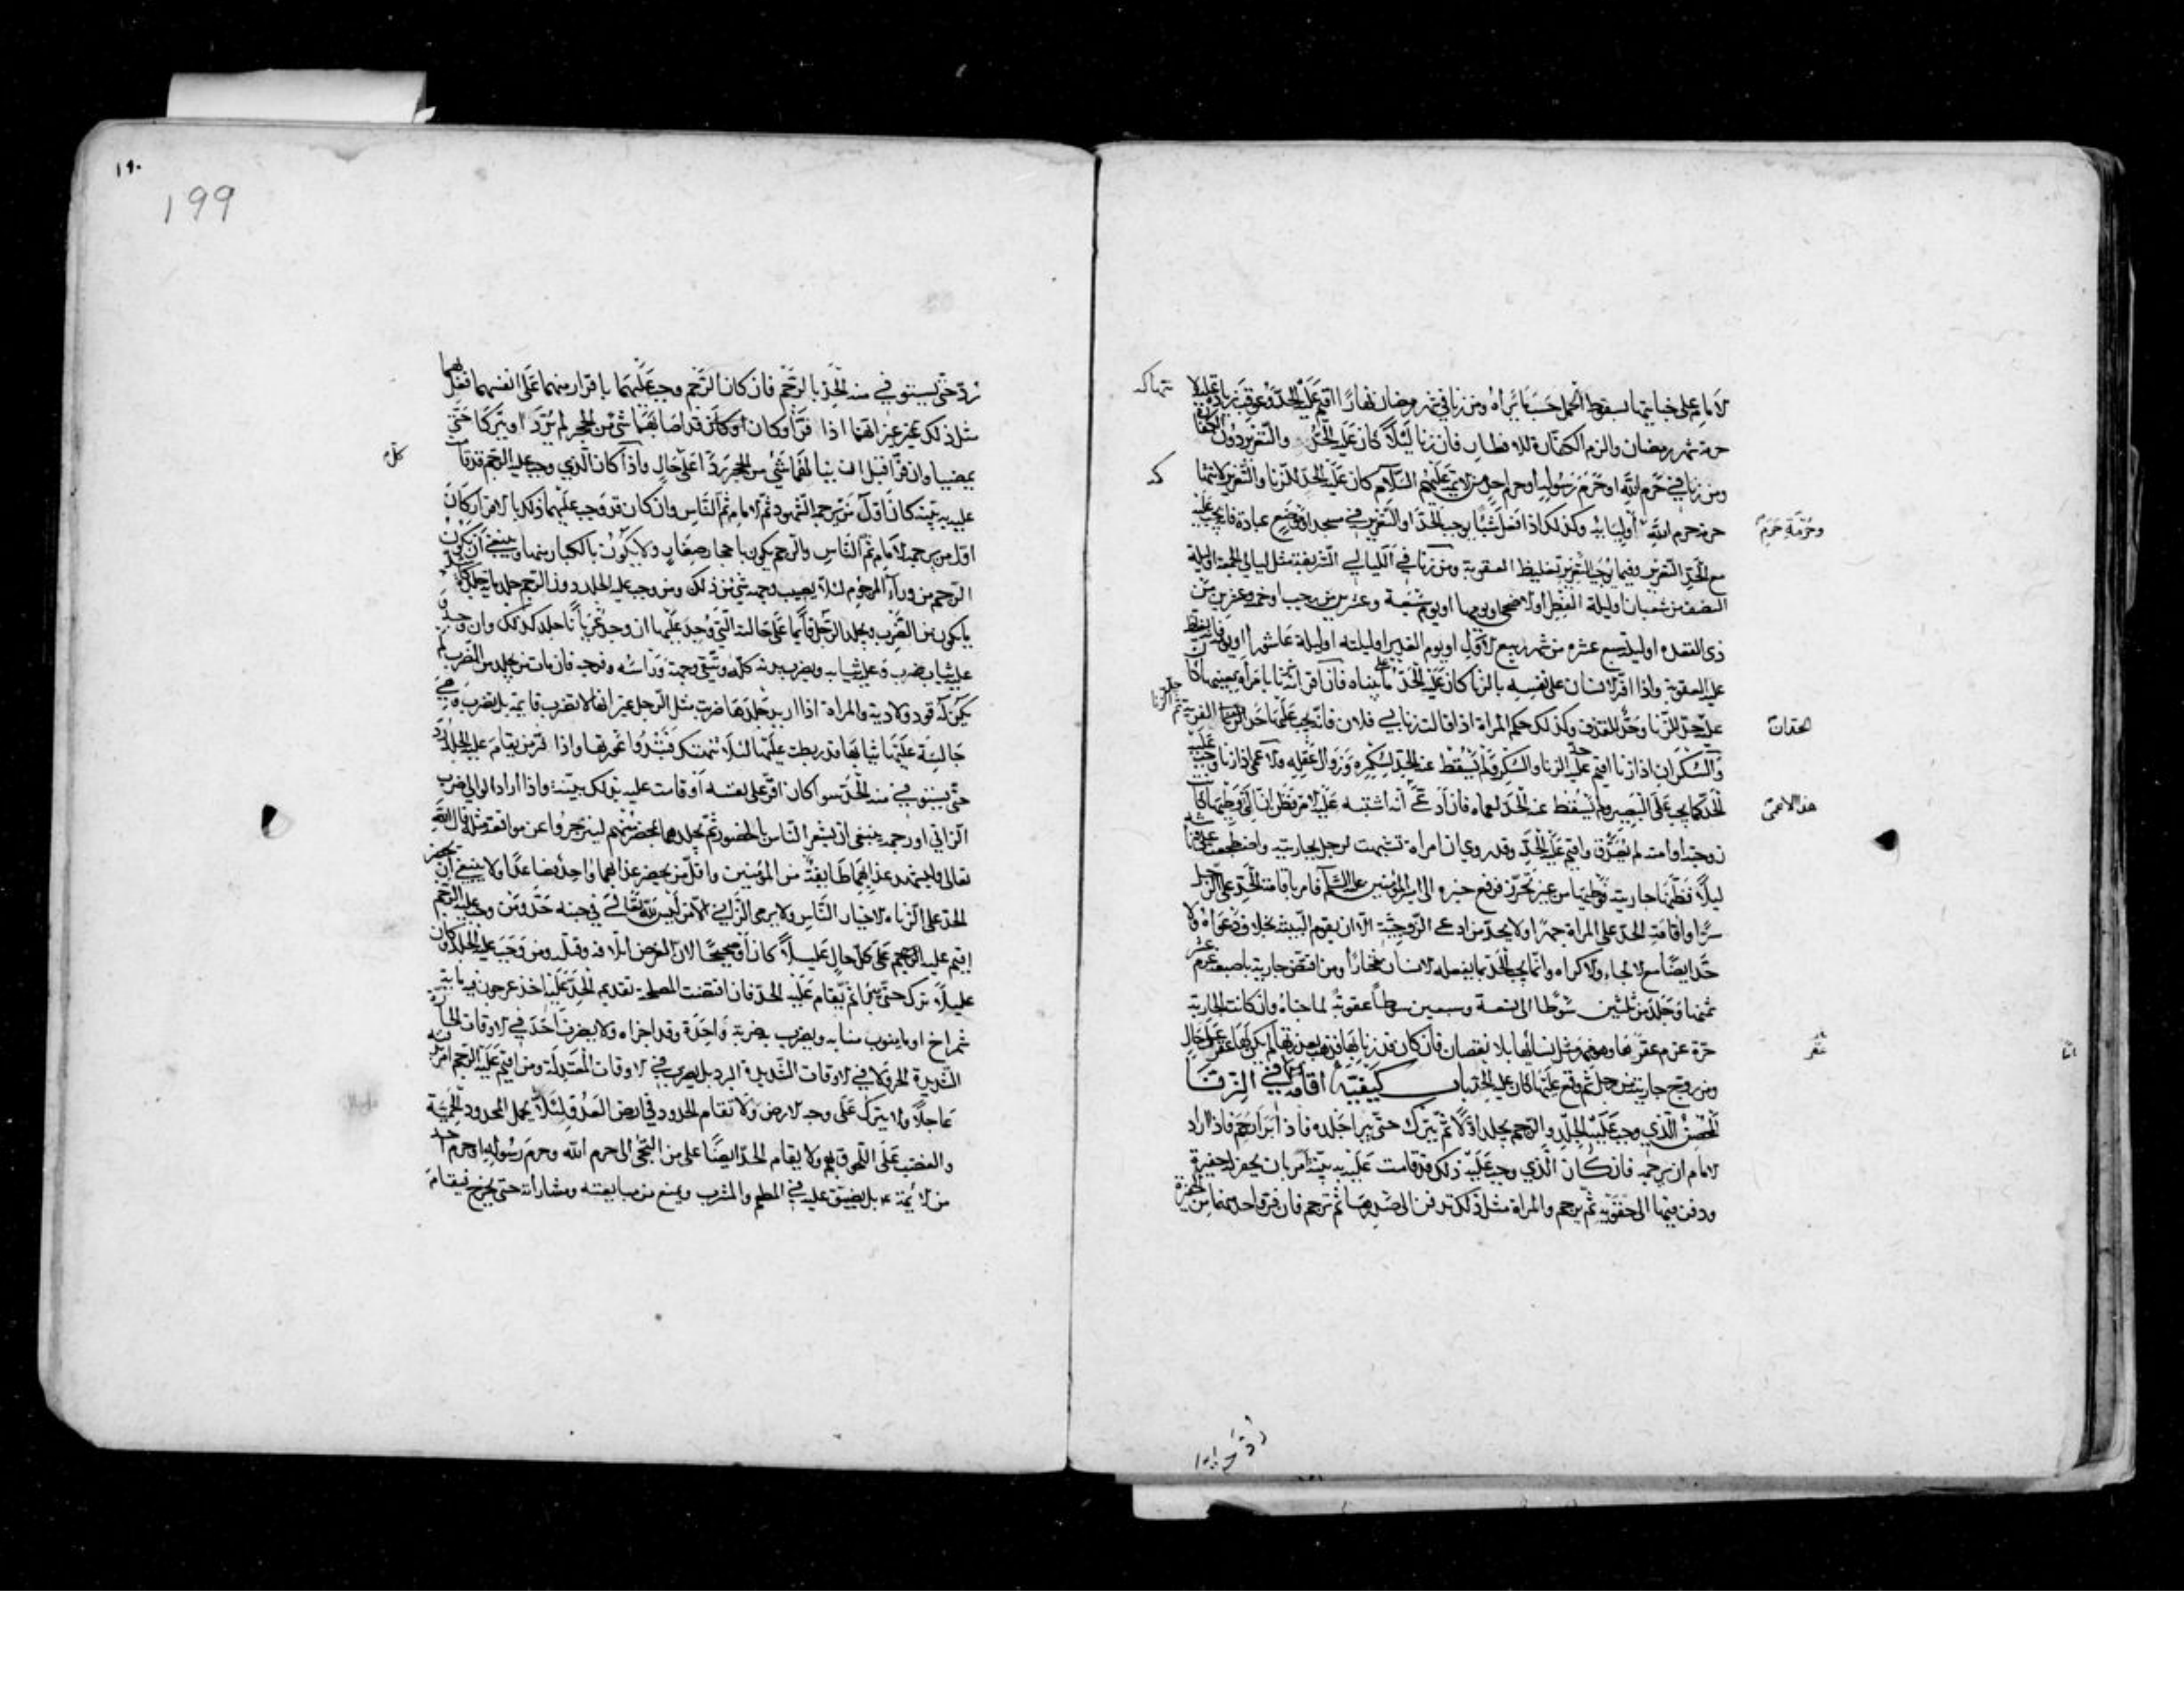 الامام على جنايتها بسقوط الحمل حسب ما يراه ومن زنا في شهر رمضان نهارا اقيم عليه الحد وعوقب زيادة عليه لانتهاكه
حرمة شهر رمضان والزم الكفارة للافطار فان زنا ليلا كان عليه الحد والتعزير دون الكفارة
ومن زنا في حرم الله او حرم رسوله او حرم احد من الائمة عليهم السلام كان عليه الحد للزنا والتعزير لانتهاكه
حرمة حرم الله واوليائه وكذلك اذا فعل شيئا يوجب الحد او التعزير في مسجد او موضع عبادة فانه يجب عليه
وحرمة حرم
مع الحد التعزير وفيما يوجب التعزير تغليظ العقوبة ومن زنا في الليالي الشريفة مثل ليالي الجمعة او ليلة
النصف من شعبان او ليلة الفطر او الاضحى او يومهما او يوم سبعة وعشرين من رجب او خمسة وعشرين من
ذي القعدة او ليلة سبع عشرة من شهر ربيع الاول او يوم الغدير او ليلته او ليلة عاشورا او يومه فانه يغلظ
عليه العقوبة واذا اقر الانسان على نفسه بالزنا كان عليه الحد على ما بيناه فان اقر انه زنا بامرأة بعينها كان
عليه حد الزنا وحد القذف وكذلك حكم المراة اذا قالت زنا بي فلان فانه يجب عليها حد الزنا وحد الفرية
الحدان
والسكران اذا زنا اقيم عليه حد الزنا والسكر ولم يسقط عنه الحد لسكره وزوال عقله والاعمى اذا زنا وجب عليه
الحد كما يجب على البصير ولم يسقط عنه الحد لعماه فان ادعى انه اشتبه عليه الامر فظن ان التي وطيها كانت
هذا الاعمى
زوجته او امته لم يصدق واقيم عليه الحد وقد روي ان امراة تشبهت لرجل بجاريته واضطجعت على فراشه
ليلا فظنها جاريته فوطيها من غير تحرز فرفع خبره الى امير المؤمنين عليه السلم فامر باقامة الحد على الرجل
سرا واقامة الحد على المراة جهرا ولا يحد من ادعى الزوجية الا ان يقوم البينة بخلاف دعواه ولا
حد ايضا مع الالجاء والاكراه وانما يجب الحد بما يفعله الانسان مختارا ومن افتض جارية باصبعه غرم عشر
ثمنها وجلد من ثلثين سوطا الى تسعة وسبعين سوطا عقوبة لما جناه وان كانت الجارية
حرة غرم عقرها وهو مهر مثل نسائها بلا نقصان فان كان قد زنا بها فذهب بعذرتها لم يكن لها عقر على حال
ومن زوج جاريته من رجل ثم وقع عليها كان عليه الحد باب كيفية اقامة الحد في الزنا
المحصن الذي وجب عليه الجلد والرجم يجلد اولا ثم يترك حتى يبرا جلده فاذا برا رجم فاذا اراد
الامام ان يرجمه فان كان الذي وجب عليه ذلك قد قامت عليه به بينة امر بان يحفر له حفيرة
ودفن فيها الى حقويه ثم يرجم والمراة مثل ذلك تدفن الى صدرها ثم ترجم فان فر واحد منهما من الحفيرة
رد حتى
١٩٠
199
رد حتى يستوفي منه الحد بالرجم فان كان الرجم وجب عليهما باقرار منهما على انفسهما فعل بهما
مثل ذلك غير انهما اذا فرا وكان قد اصابهما شي من الحجر لم يردا ويتركا حتى
يمضيا وان فرا قبل ان ينالهما شي من الحجر ردا على كل حال واذا كان الذي وجب عليه الرجم قد قامت
عليه به بينة كان اول من يرجمه الشهود ثم الامام ثم الناس وان كان قد وجب عليهما ذلك بالاقرار كان
اول من يرجمه الامام ثم الناس والرجم يكون باحجار صغار ولا يكون بالكبار منها وينبغي ان يكون
الرجم من وراء المرجوم لئلا يصيب وجهه شي من ذلك ومن وجب عليه الجلد دون الرجم جلد ماية جلدة كاشد
ما يكون من الضرب ويجلد الرجل قائما على حالته التي وجد عليها ان وجد عريانا جلد كذلك وان وجد و
عليه ثياب ضرب وعليه ثيابه ويضرب بدنه كله ويتقى وجهه وراسه وفرجه فان مات من يجلد من الضرب لم
يكن له قود ولا دية والمراة اذا اريد جلدها ضربت مثل الرجل غير انها لا تضرب قايمة بل تضرب وهي
جالسة عليها ثيابها قد ربطت عليها لئلا تنهتك فتبدوا عورتها واذا فر من يقام عليه الجلد رد
حتى يستوفي منه الحد سوا كان اقر على نفسه او قامت عليه بذلك بينة واذا اراد الوالي ضرب
الزاني او رجمه ينبغي ان يشعر الناس بالحضور ثم يجلده بمحضر منهم لينزجروا عن مواقعة مثله قال الله
تعالى وليشهد عذابهما طايفة من المؤمنين واقل من يحضر عذابهما واحد فصاعدا ولا ينبغي ان يحضر
الحد على الزناه الا خيار الناس ولا يرمى الزاني الا من ليس لله تعالى في جنبه حد ومن وجب عليه الرجم
اقيم عليه الرجم على كل حال عليلا كان او صحيحا لان الغرض اتلافه وقتله ومن وجب عليه الجلد وكان
عليلا ترك حتى يبرا ثم يقام عليه الحد فان اقتضت المصلحة تقديم الحد عليه اخذ عرجون فيه ماية
شمراخ او ما ينوب منابه ويضرب به ضربة واحدة وقد اجزاه ولا يضرب احد في الاوقات الحارة
الشديدة الحر ولا في الاوقات الشديدة البرد بل يضرب في الاوقات المعتدلة ومن اقيم عليه الرجم امر بدفنه
عاجلا ولا يترك على وجه الارض ولا تقام الحدود في ارض العدو لئلا يحمل المحدود الحمية
والغضب على اللحوق بهم ولا يقام الحد ايضا على من التجى الى حرم الله وحرم رسوله او حرم احد
من الائمة ع بل يضيق عليه في المطعم والمشرب ويمنع من مبايعته ومشاراته حتى يخرج فيقام